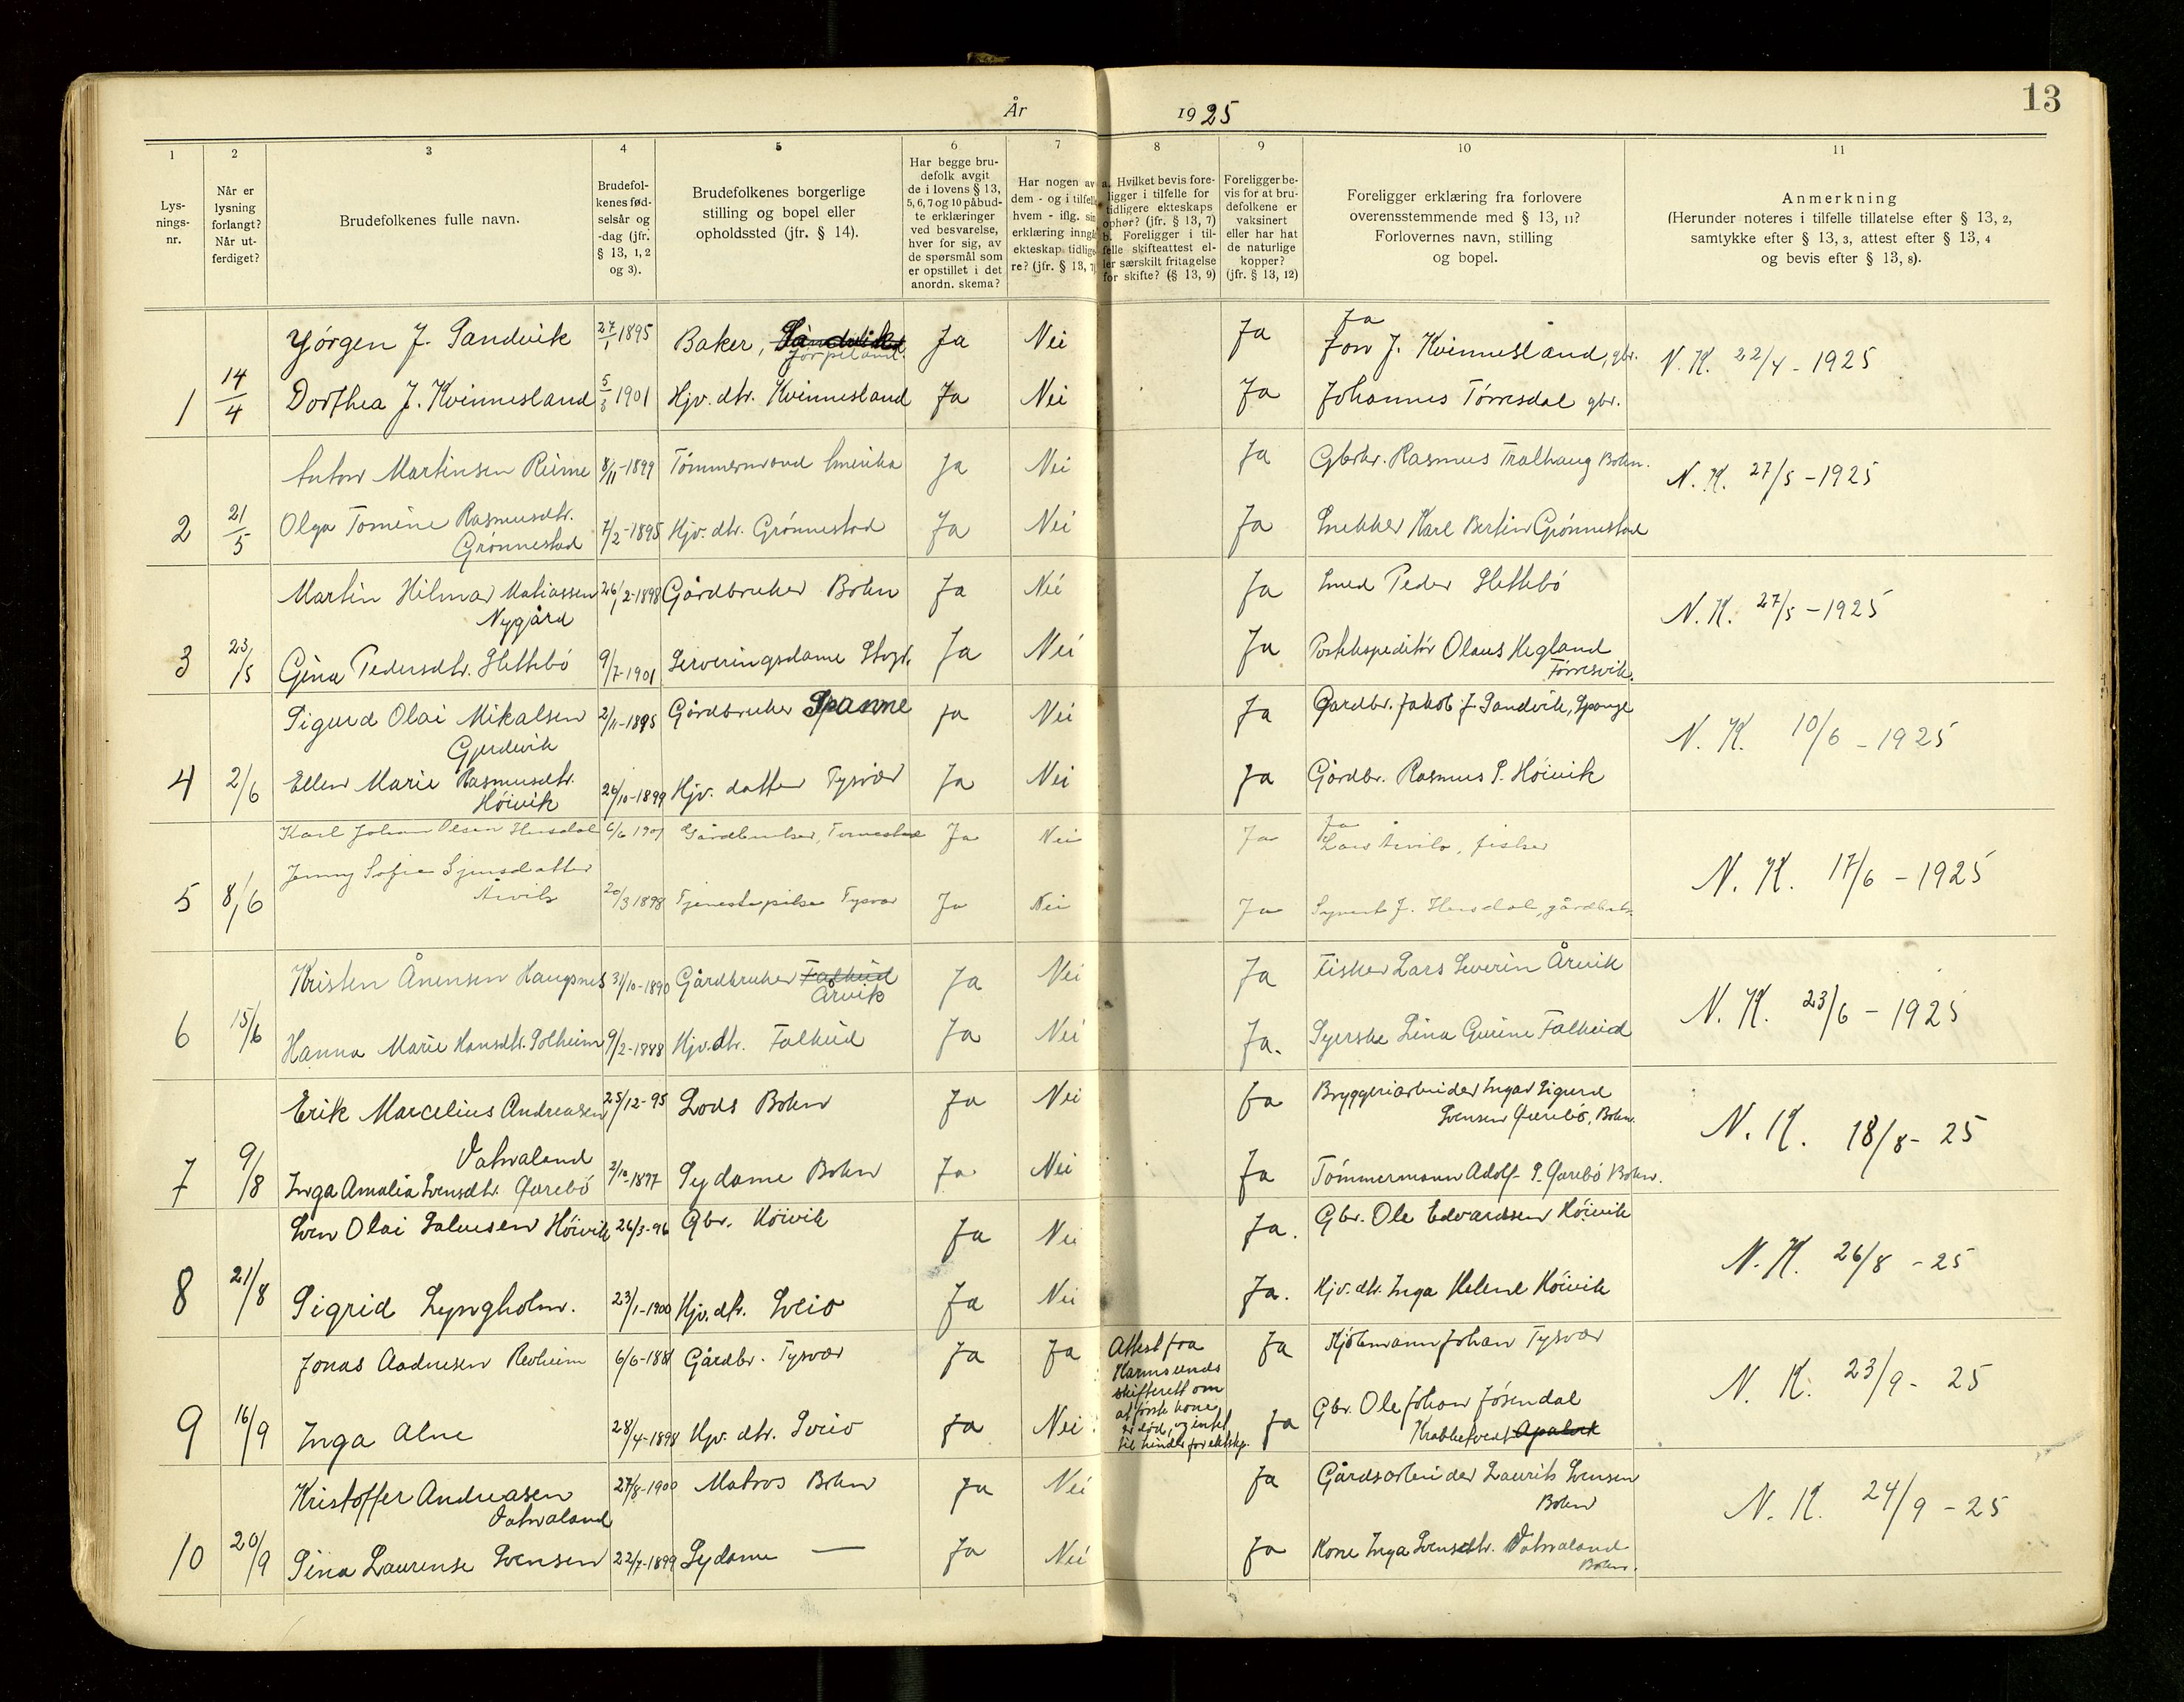 År 1925
13
1 2 3 4 5 6 7 8 9 10 11
Lys-
nings-
nr.
Når er
lysning
forlangt?
Når ut-
ferdiget?
Brudefolkenes fulle navn.
Brudefol-
kenes fød-
selsår og
-dag (jfr.
§ 13, 1, 2
og 3).
Brudefolkenes borgerlige
stilling og bopel eller
opholdssted (jfr. § 14).
Har begge bru-
defolk avgit
de i lovens § 13,
5, 6, 7 og 10 påbud-
te erklæringer
ved besvarelse,
hver for sig, av
de spørsmål som
er opstillet i det
anordn. skema?
Har nogen av
dem - og i tilfelle
hvem - iflg. sin
erklæring inngåt
ekteskap tidlige-
re? (jfr. § 13, 7)
a. Hvilket bevis fore-
ligger i tilfelle for
tidligere ekteskaps
ophør? (jfr. § 13, 7)
b. Foreligger i til-
felle skifteattest el-
ler særskilt fritagelse
for skifte? (§ 13, 9)
Foreligger be-
vis for at bru-
defolkene er
vaksinert
eller har hat
de naturlige
kopper?
(jfr. § 13, 12)
Foreligger erklæring fra forlovere
overensstemmende med § 13, 11?
Forlovernes navn, stilling
og bopel.
Anmerkning
(Herunder noteres i tilfelle tillatelse efter § 13, 2,
samtykke efter § 13, 3, attest efter § 13, 4
og bevis efter § 13, 8).
Jørgen J. Sandvik 27/1 1895 Baker, Sandvik Ja Nei Ja Ja
Jørpeland Jon J. Kvinnesland, gbr. N. K. 22/4 - 1925
1 14/4 Dorthea J. Kvinnesland 1901 Hjv. dtr. Kvinnesland Ja Nei Ja Johannes Tørresdal gbr.
Anton Martinsen Reime 8/11-1899 Tømmermand Amerika Ja Nei Ja Gbrkr. Rasmus Bokn. N. K. 27/5 - 1925
2 21/5 Olga Tomine Rasmusdtr. 7/2-1895 Hjv. dtr. Grønnestad Ja Nei Ja Snekker Karl Bertin Grønnestad
Grønnestad
Martin Hilmar Matiassen 26/2-1898 Gårdbruker Bokn Ja Nei Ja Smed Peder Slettebø N. K. 27/5 - 1925
Nygård
3 23/5 Gina Pedersdtr. Slettebø 9/7-1901 Serveringsdame Ja Nei Ja Postekspeditør Olaus Hegland
Førresvik.
Sigurd Olai Mikalsen 2/11-1895 Gårdbruker Spanne Ja Nei Ja Gardbr. Jakob J. Sandvik, N. K. 10/6 - 1925
Gjerdevik
4 2/6 Ellen Marie Rasmusdtr. 26/10-1899 Hjv. datter Tysvær Ja Nei Ja Gårdbr. Rasmus P. Høivik
Høivik
Karl Johan Olsen Hersdal 6/6 1901 Gårdbruker, Ja Nei Ja Ja
Lars Årvik, fisker N. K. 17/6 - 1925
Jenny Sofie
5 8/6 Årvik 20/3 1898 Tjenestepike Tysvær Ja Nei Ja Syvert J. Hersdal, gårdbr.
Kristen Ånensen Haugsnes 31/10-1890 Gårdbruker Falkeid Ja Nei Ja Fisker Lars Severin Årvik N. K. 23/6 - 1925
Årvik
6 15/6 Hanna Marie Hansdtr. Solheim 9/2-1888 Hjv. dtr. Falkeid Ja Nei Ja. Syerske Lina Gurine Falkeid
Erik Marcelius Andreasen 25/12-95 Lods Bokn Ja Nei Ja Bryggeriarbeider Ingar Sigurd
Svensen Øvrebø, Bokn. N. K. 18/8 - 25
Vatnaland
7 9/8 Inga Amalia Svensdtr. Øvrebø 2/10-1897 Sydame Bokn Ja Nei Ja Tømmermann Adolf S. Øvrebø Bokn.
Sven Olai Salvesen Høivik 26/3-96 Gbr. Høivik Ja Nei Ja. Gbr. Ole Edvardsen Høivik N. K. 26/8 - 25
8 21/8 Sigrid Lyngholm. 23/1-1900 Hjv. dtr. Sveio Ja Nei Ja. Hjv. dtr. Inga Helene Høivik
Jonas Aadnesen Revheim 6/6-1881 Gårdbr. Tysvær Ja Ja Attest fra
Karmsunds
skifterett om
at første kone
er død, og intet
til hinder for ektskp. Ja Kjøbmann Johan Tysvær N. K. 23/9 - 25
9 16/9 Inga Alne 28/4-1898 Hjv. dtr. Sveio Ja Nei Ja Gbr. Ole Johan Jøsendal
Krabbetveit
Kristoffer Andreasen 27/8-1900 Matros Bokn Ja Nei Ja Gårdsarbeider Laurits Svensen
Bokn N. K. 24/9 - 25
Vatnaland
10 20/9 Sina Laurense Svensen 22/7-1899 Sydame — Ja Nei Ja Kone Inga Svensdtr. Vatnaland
Bokn.